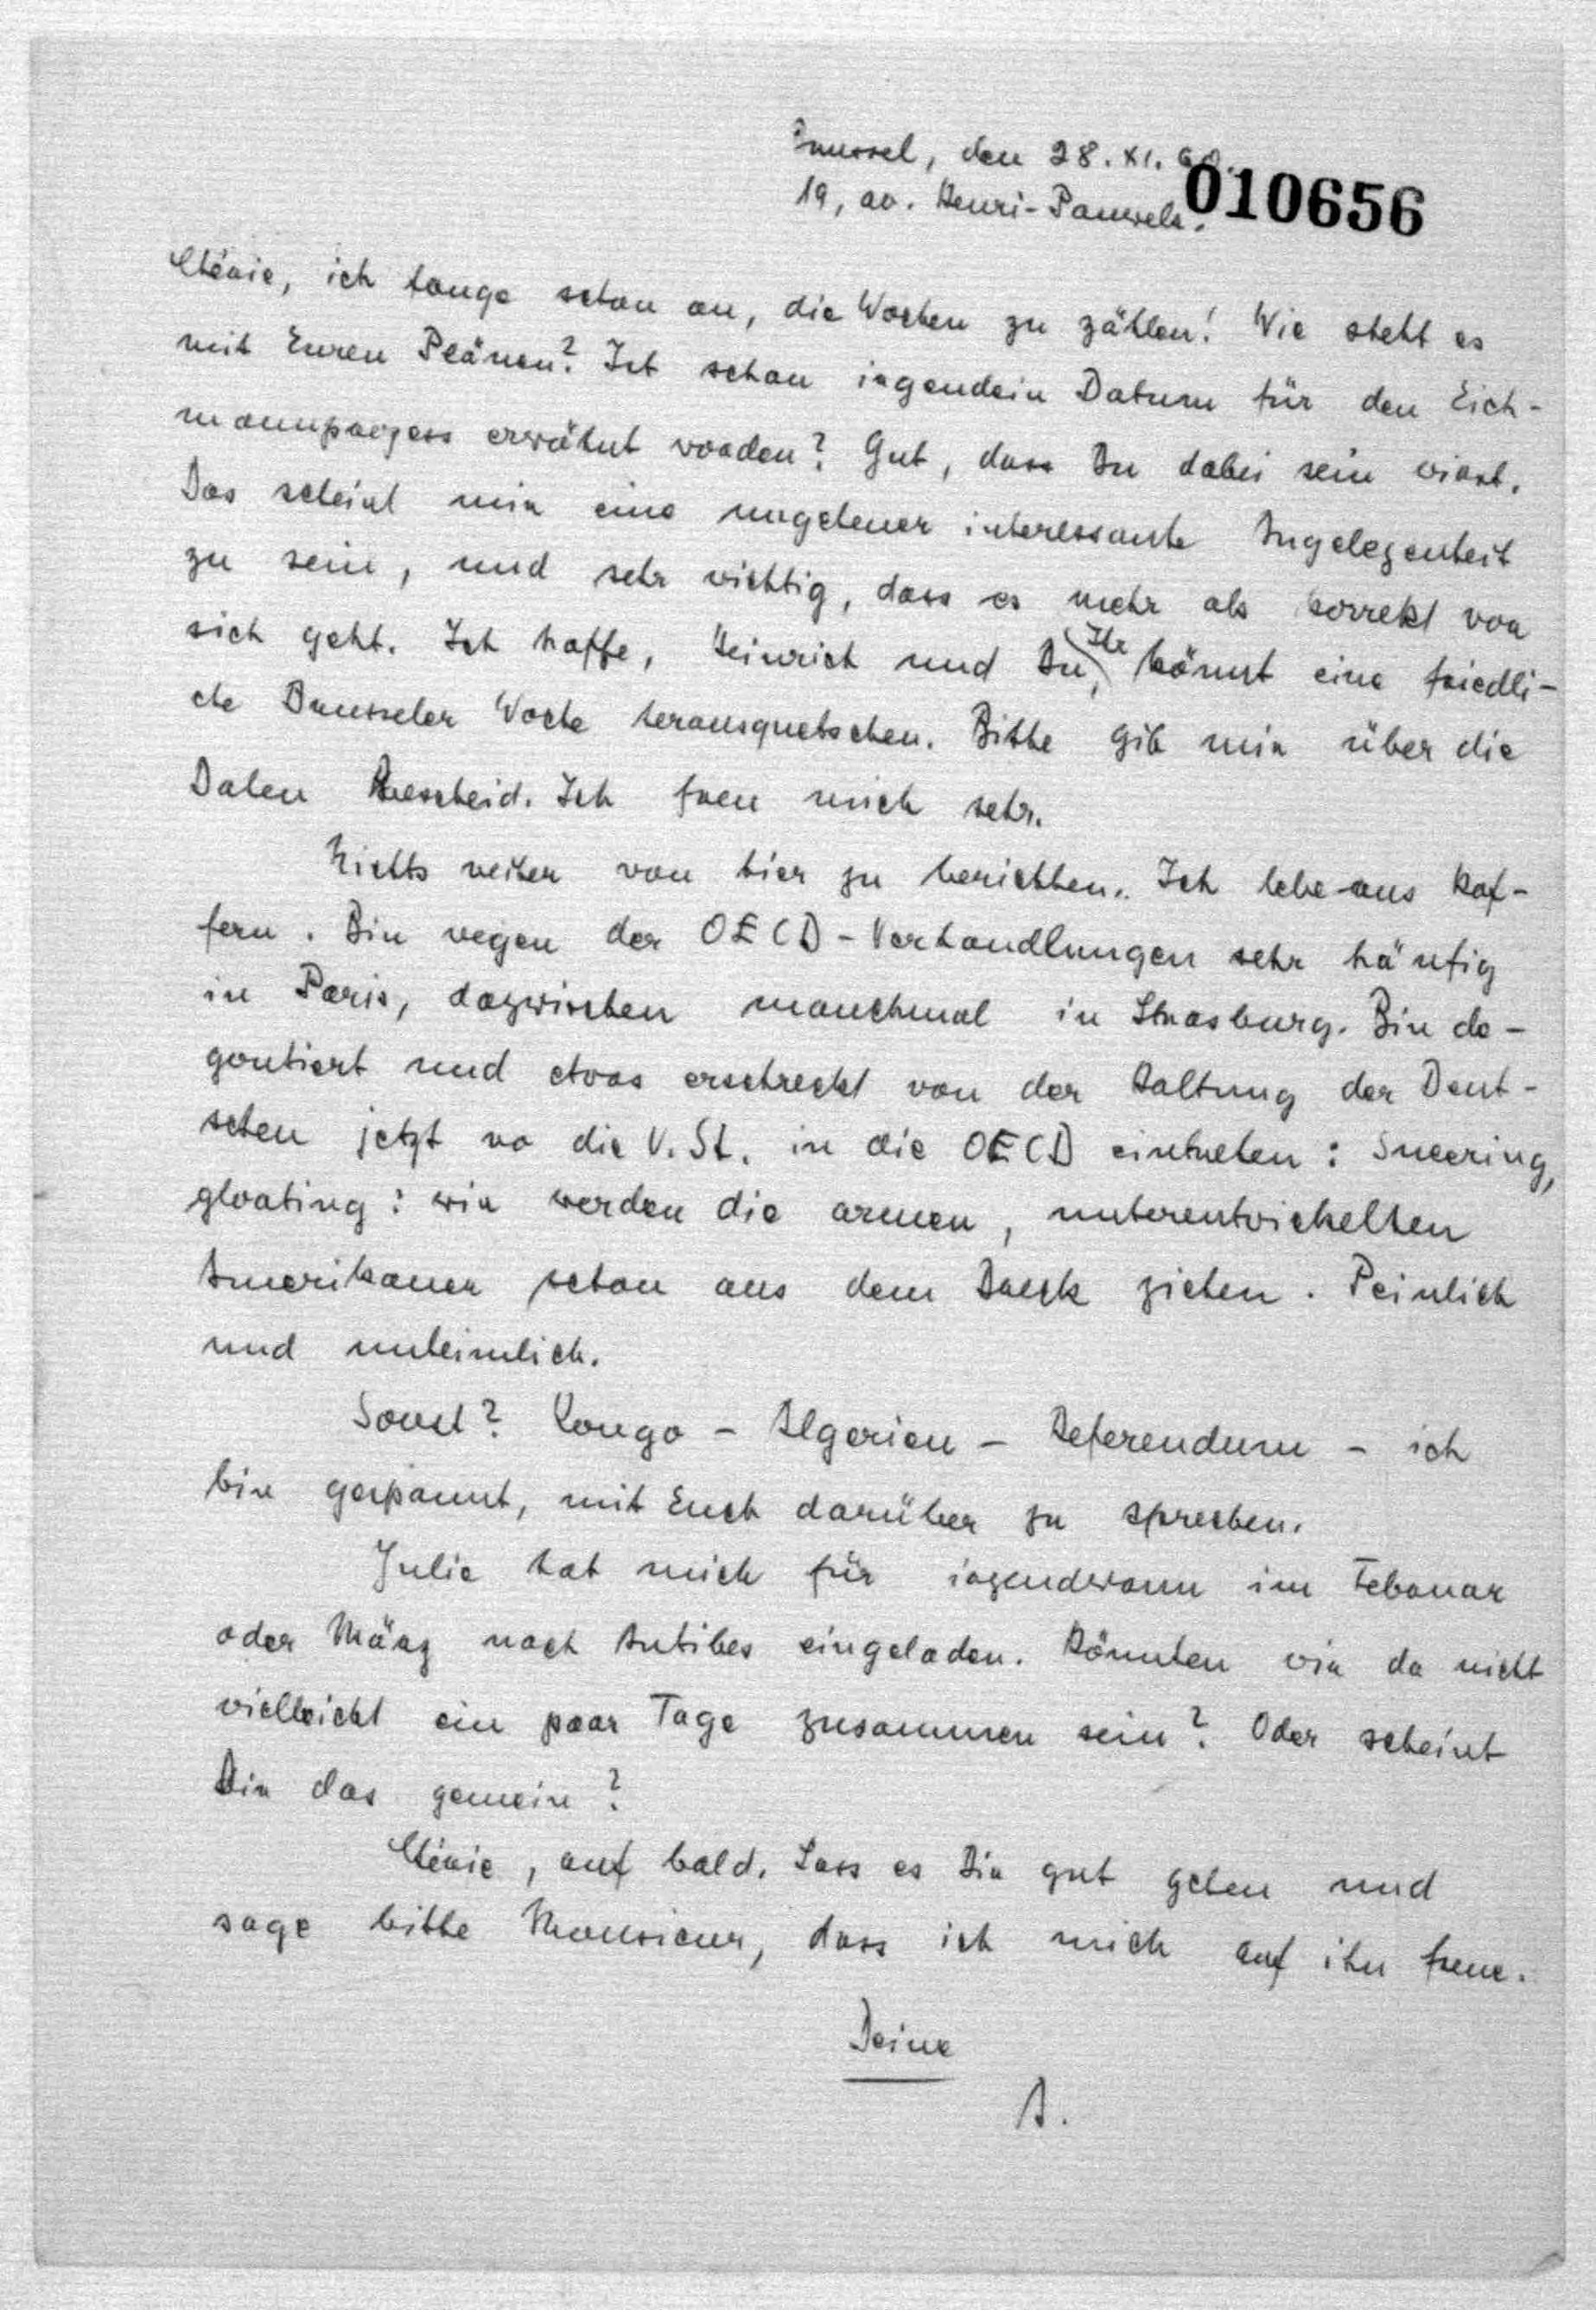 Brussel, den 28. XI. 60.
19, av. Henri-Pauwels.
010656
Chérie, ich fange schon an, die Wochen zu zählen! Wie steht es
mit Euren Plänen? Ist schon irgendein Datum für den Eich-
mannprozess erwähnt worden? Gut, dass Du dabei sein wirst.
Das scheint mir eine ungeheuer interessante Angelegenheit
zu sein, und sehr wichtig, dass es mehr als korrekt vor
sich geht. Ich hoffe, Heinrich und Du, Ihr könnt eine friedli-
che Brusseler Woche herausquetschen. Bitte gib mir über die
Daten Bescheid. Ich freu mich sehr.
Nichts weiter von hier zu berichten. Ich lebe aus Kof-
fern. Bin wegen der OECD-Verhandlungen sehr häufig
in Paris, dazwischen manchmal in Strasburg. Bin de-
goutiert und etwas erschreckt von der Haltung der Deut-
schen jetzt wo die V. St. in die OECD eintreten: Sneering,
gloating: wir werden die armen, unterentwickelten
Amerikaner schon aus dem Dreck ziehen. Peinlich
und unheimlich.
Sonst? Kongo - Algerien - Referendum - ich
bin gespannt, mit Euch darüber zu sprechen.
Julie hat mich für irgendwann im Februar
oder März nach Antibes eingeladen. Könnten wir da nicht
vielleicht ein paar Tage zusammen sein? Oder scheint
Dir das gemein?
Chérie, auf bald. Lass es Dir gut gehen und
sage bitte Monsieur, dass ich mich auf ihn freue.
Deine
A.